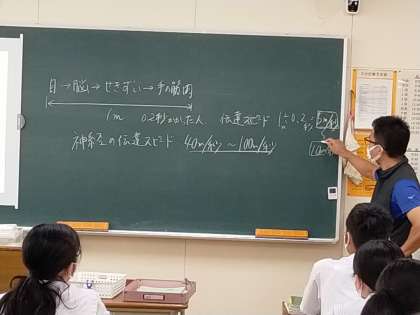 目→脳→せきずい→手の筋肉
1m 0.2秒かかた人、伝達スピード 1m÷0.2秒=5m/秒
神経の伝達スピード 40m/秒〜100m/秒